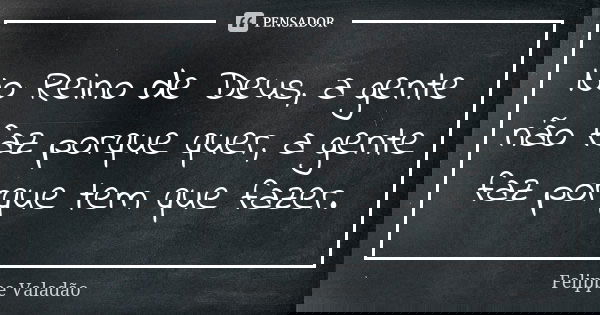 PENSADOR
No Reino de Deus, a gente
não faz porque quer, a gente
faz porque tem que fazer.
Felippe Valadão